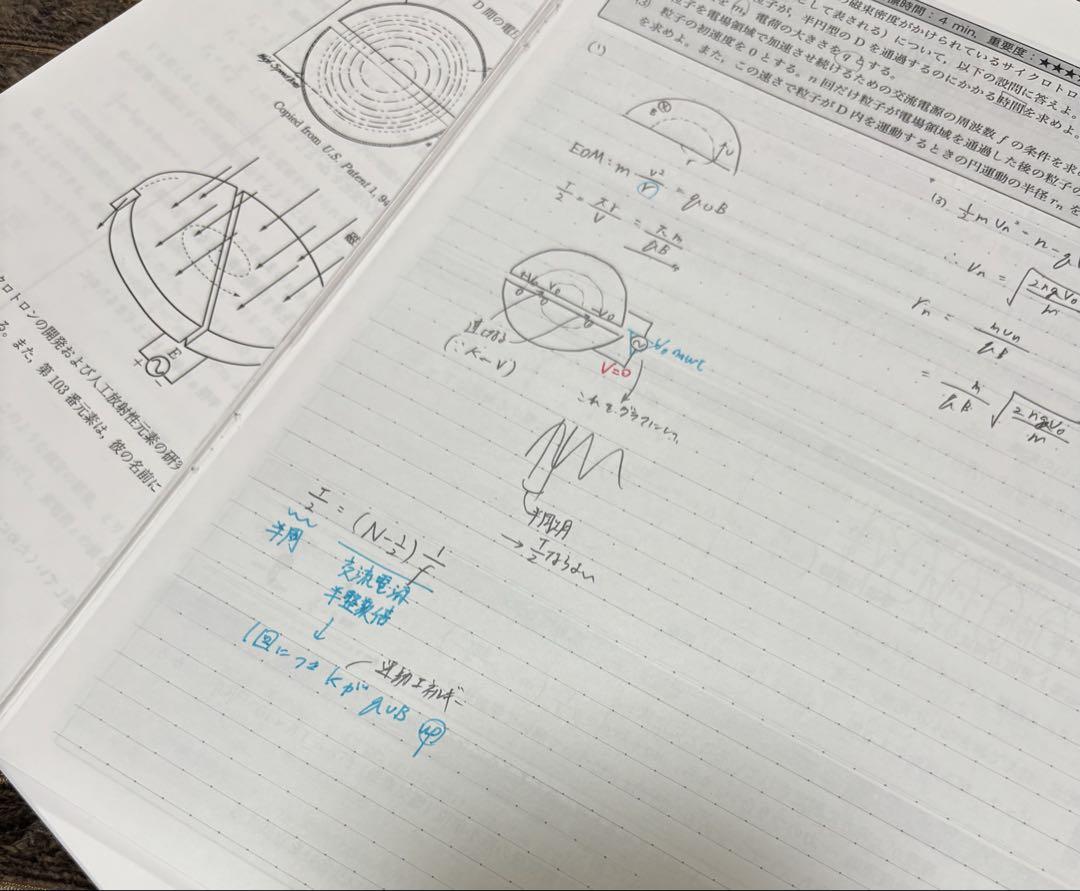 D 間の電
Copied from U.S. Patent 1, 94
磁
E
+
−
クロトロンの開発および人工放射性元素の研究
る。また，第 103 番元素は，彼の名前に
時間：4 min. 重要度：★★★
の磁束密度がかけられているサイクロトロ
として表される）について，以下の設問に答えよ。
粒子が，半円型の D を通過するのにかかる時間を求めよ。
m，電荷の大きさを q とする。
粒子を電場領域で加速させ続けるための交流電源の周波数 f の条件を求め
(3) 粒子の初速度を 0 とする。n 回だけ粒子が電場領域を通過した後の粒子の
を求めよ。また，この速さで粒子が D 内を運動するときの円運動の半径 rn を
(1)
B
r
EOM: m v²/r = qvB
T/2 = πr/v = πm/qB
+V₀ V₀ −V₀
0 0
速くなる
(∵K−V)
V=0
これをグラフにして、
半周期
→ T/2 ならよい
T/2 = (N−1/2) 1/f
半周
交流電源
半整数倍
↓
運動エネルギー
1回につき K が qvB up
(3) 1/2 m vn² = n · q
∴ vn = √(2nqV₀/m)
rn = mvn/qB
= m/qB √(2nqV₀/m)